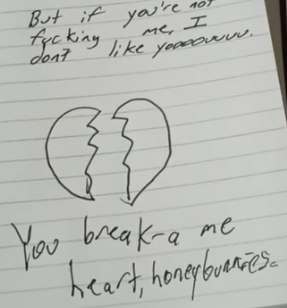 But if you're not
fucking me, I
dont like yoooouuuu.
You break-a me
heart, honeybunnies.